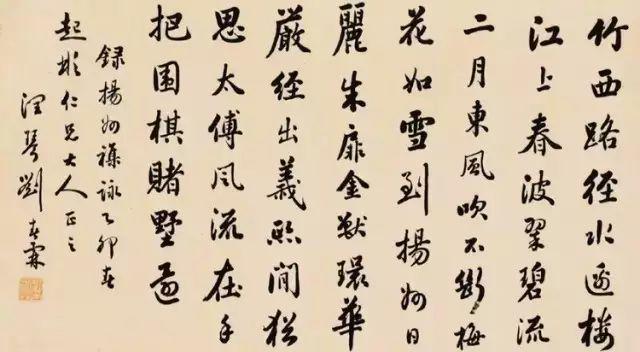 竹西路径水邊楼
江上春波翠碧流
二月東風吹不斷梅
花如雪到揚州日
麗朱扉金獸環華
嚴経出義熙間猶
思太傅風流在手
把围棋賭墅還
録揚州襍詠乙卯春
起彬仁兄大人正之
潤琴劉春霖